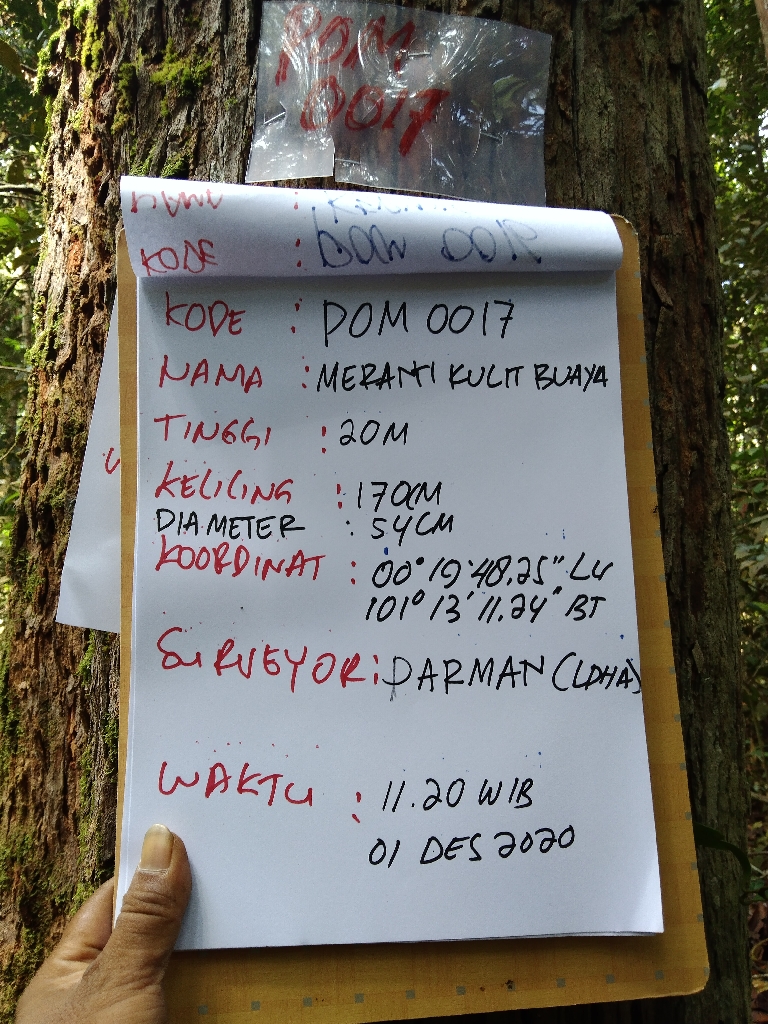 POM
0017
NAMA :
KODE :
KODE : POM 0017
NAMA : MERANTI KULIT BUAYA
TINGGI : 20M
KELILING : 170CM
DIAMETER : 54CM
KOORDINAT : 00° 19' 48.25" LU
101° 13' 11.24" BT
SURVEYOR : DARMAN (LDHA)
WAKTU : 11.20 WIB
01 DES 2020